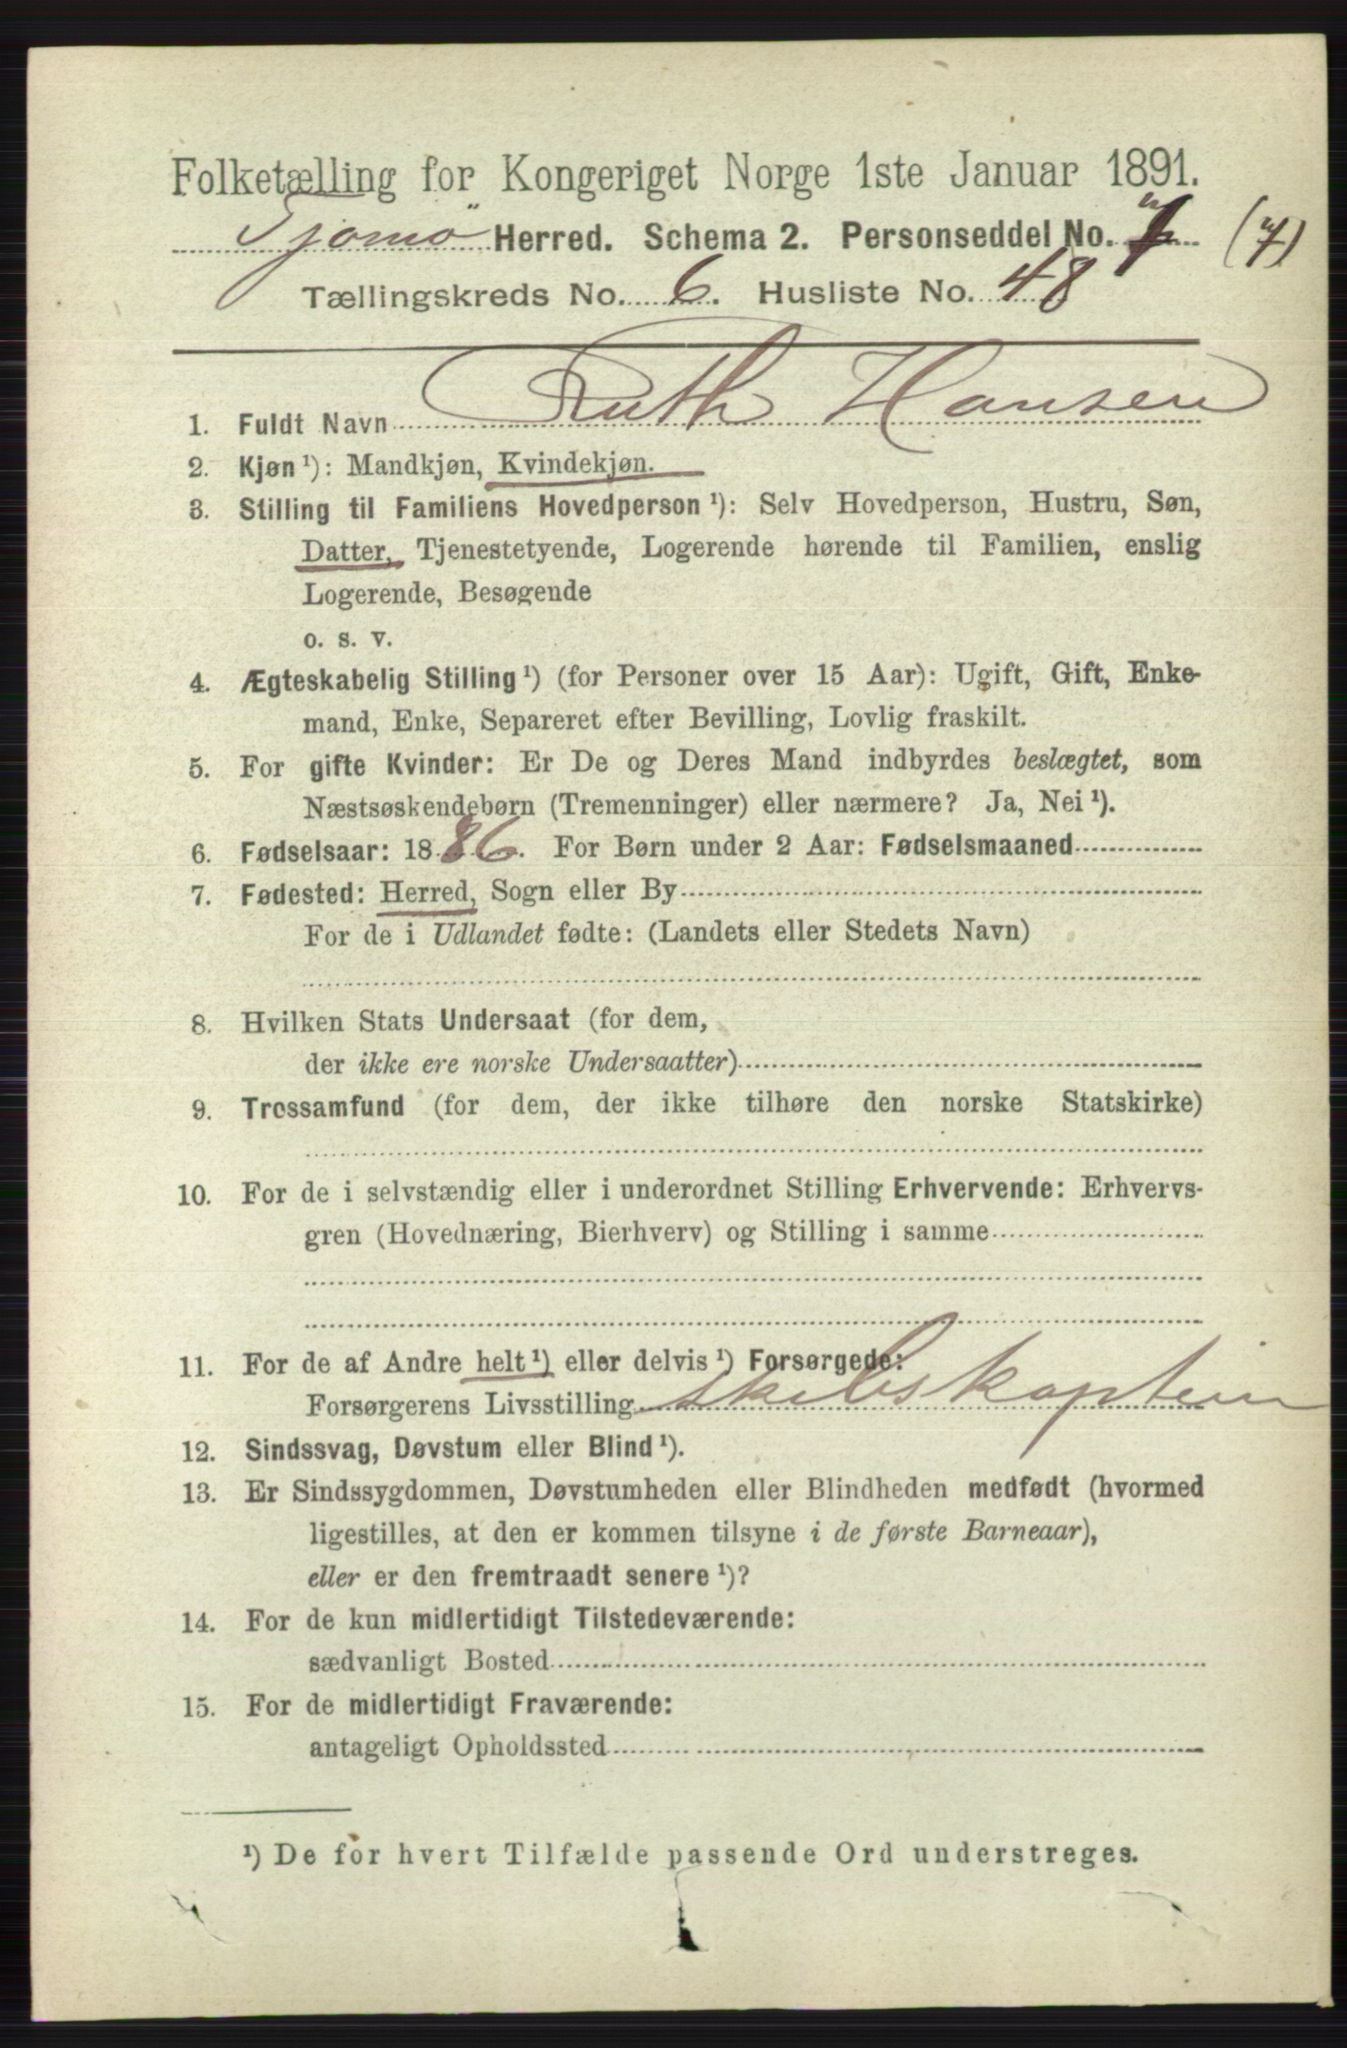 Folketælling for Kongeriget Norge 1ste Januar 1891.
Tjømø Herred. Schema 2. Personseddel No. 7 (7)
Tællingskreds No. 6. Husliste No. 48
1. Fuldt Navn Ruth Hansen
2. Kjøn ¹): Mandkjøn, Kvindekjøn.
3. Stilling til Familiens Hovedperson ¹): Selv Hovedperson, Hustru, Søn,
Datter, Tjenestetyende, Logerende hørende til Familien, enslig
Logerende, Besøgende
o. s. v.
4. Ægteskabelig Stilling ¹) (for Personer over 15 Aar): Ugift, Gift, Enke-
mand, Enke, Separeret efter Bevilling, Lovlig fraskilt.
5. For gifte Kvinder: Er De og Deres Mand indbyrdes beslægtet, som
Næstsøskendebørn (Tremenninger) eller nærmere? Ja, Nei ¹).
6. Fødselsaar: 1886. For Børn under 2 Aar: Fødselsmaaned
7. Fødested: Herred, Sogn eller By
For de i Udlandet fødte: (Landets eller Stedets Navn)
8. Hvilken Stats Undersaat (for dem,
der ikke ere norske Undersaatter)
9. Trossamfund (for dem, der ikke tilhøre den norske Statskirke)
10. For de i selvstændig eller i underordnet Stilling Erhvervende: Erhvervs-
gren (Hovednæring, Bierhverv) og Stilling i samme
11. For de af Andre helt ¹) eller delvis ¹) Forsørgede:
Forsørgerens Livsstilling skibskaptein
12. Sindssvag, Døvstum eller Blind ¹).
13. Er Sindssygdommen, Døvstumheden eller Blindheden medfødt (hvormed
ligestilles, at den er kommen tilsyne i de første Barneaar),
eller er den fremtraadt senere ¹)?
14. For de kun midlertidigt Tilstedeværende:
sædvanligt Bosted
15. For de midlertidigt Fraværende:
antageligt Opholdssted
¹) De for hvert Tilfælde passende Ord understreges.